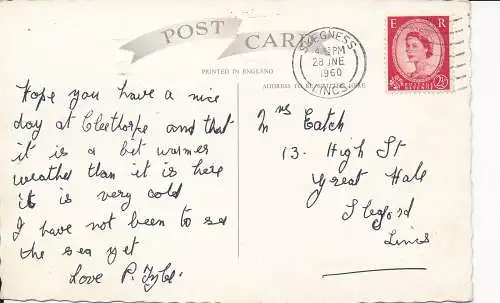 POST CARD
PRINTED IN ENGLAND
ADDRESS TO BE
SKEGNESS
PM
28 JNE
1960
LINCS
E R
POSTAGE REVENUE
2½ D
Hope you have a nice
day at Cleethorpe and that
it is a bit warmer
weather than it is here
it is very cold
I have not been to see
the sea yet
Love P.
Mrs Eatch
13. High St
Great Hale
Sleaford
Lincs